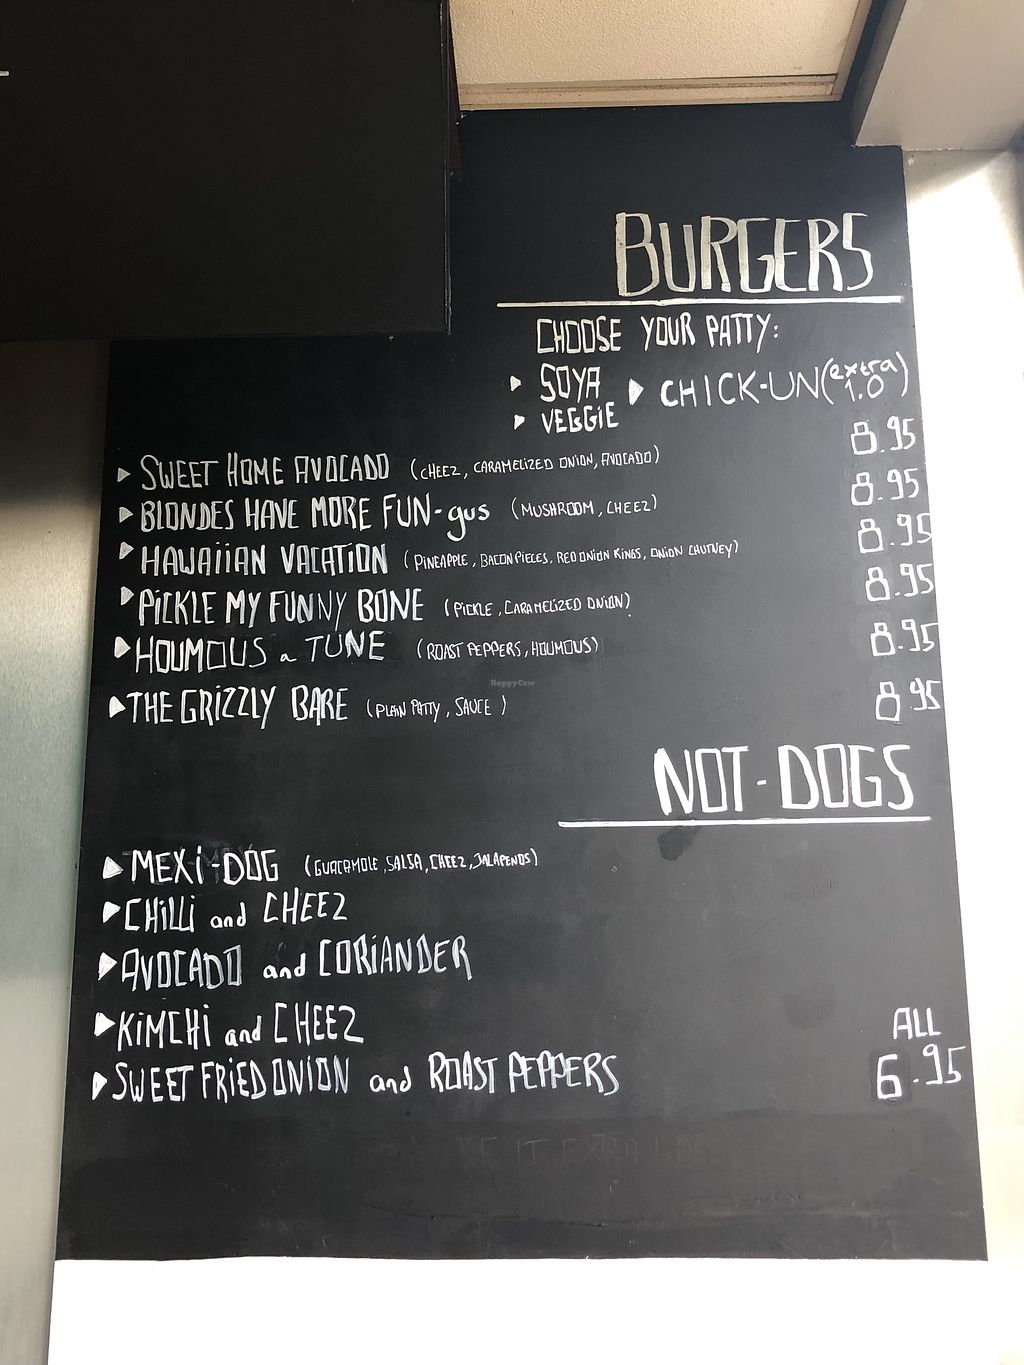 BURGERS
CHOOSE YOUR PATTY:
SOYA CHICK-UN (extra 1.0)
VEGGIE
SWEET HOME AVOCADO (CHEEZ, CARAMELIZED ONION, AVOCADO) 8.95
BLONDES HAVE MORE FUN-gus (MUSHROOM, CHEEZ) 8.95
HAWAIIAN VACATION (PINEAPPLE, BACON PIECES, RED ONION RINGS, ONION CHUTNEY) 8.95
PICKLE MY FUNNY BONE (PICKLE, CARAMELIZED ONION) 8.95
HOUMOUS a TUNE (ROAST PEPPERS, HOUMOUS) 8.95
THE GRIZZLY BARE (PLAIN PATTY, SAUCE) 8.95
HappyCow
NOT-DOGS
MEXI-DOG (GUACAMOLE, SALSA, CHEEZ, JALAPENOS)
CHILLI and CHEEZ
AVOCADO and CORIANDER
KIMCHI and CHEEZ
SWEET FRIED ONION and ROAST PEPPERS
ALL
6.95